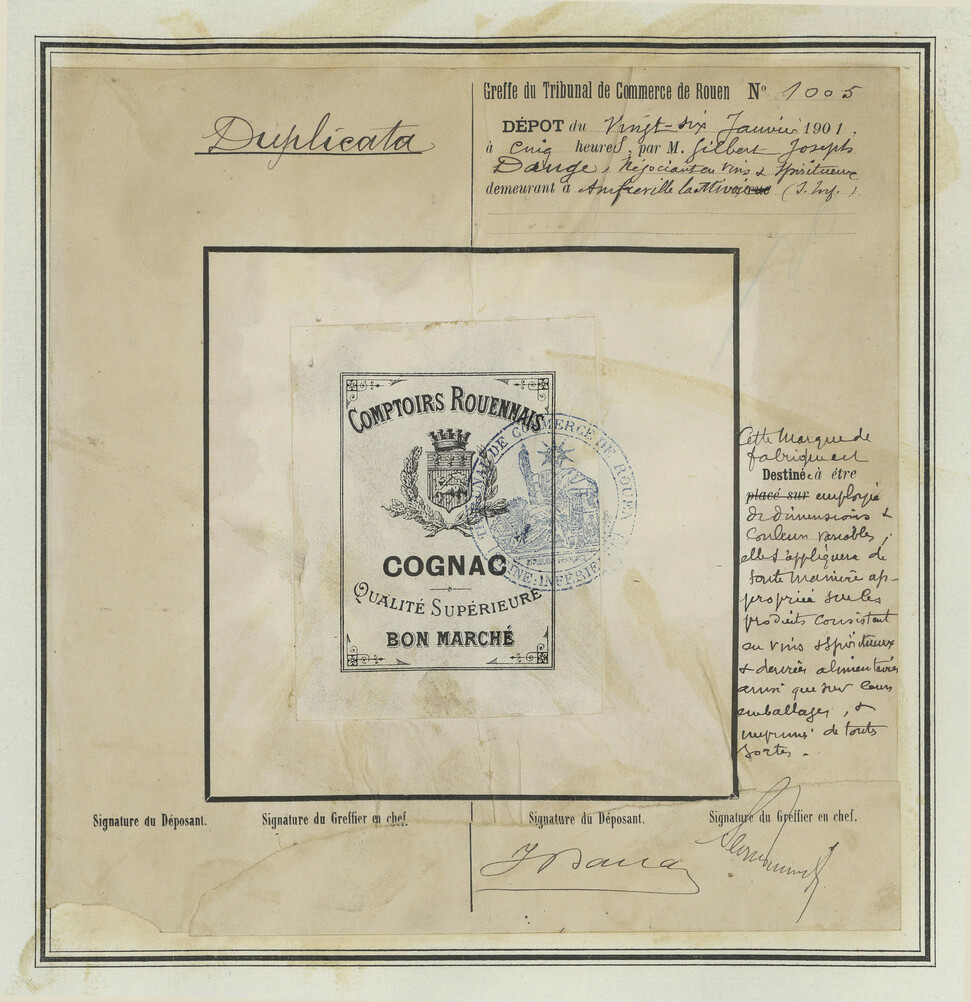 Duplicata
Greffe du Tribunal de Commerce de Rouen N° 1005
DÉPOT du Vingt-six Janvier 1901.
à Cinq heures, par M. Gilbert Joseph
Dauge, Négociant en Vins & Spiritueux
demeurant à Amfreville la Mivoie (S. Inf.)
COMPTOIRS ROUENNAIS
COGNAC
QUALITÉ SUPÉRIEURE
BON MARCHÉ
TRIBUNAL DE COMMERCE DE ROUEN
SEINE-INFÉRIEURE
Cette Marque de
fabrique est
Destinée à être
placé sur employée
de dimensions &
Couleurs variables,
elle s'appliquera de
toute manière ap-
propriée sur les
produits consistant
en vins & spiritueux
& denrées alimentaires
ainsi que sur leurs
emballages, &
imprimés de toutes
sortes.
Signature du Déposant.
Signature du Greffier en chef.
Signature du Déposant.
Signature du Greffier en chef.